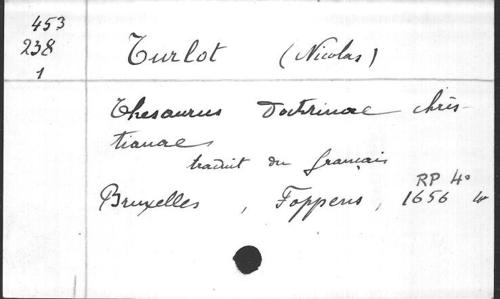 453
238
1
Turlot (Nicolas)
Thesaurus Doctrinae Chris-
tianae
traduit du français
RP 4°
Bruxelles, Foppens, 1656